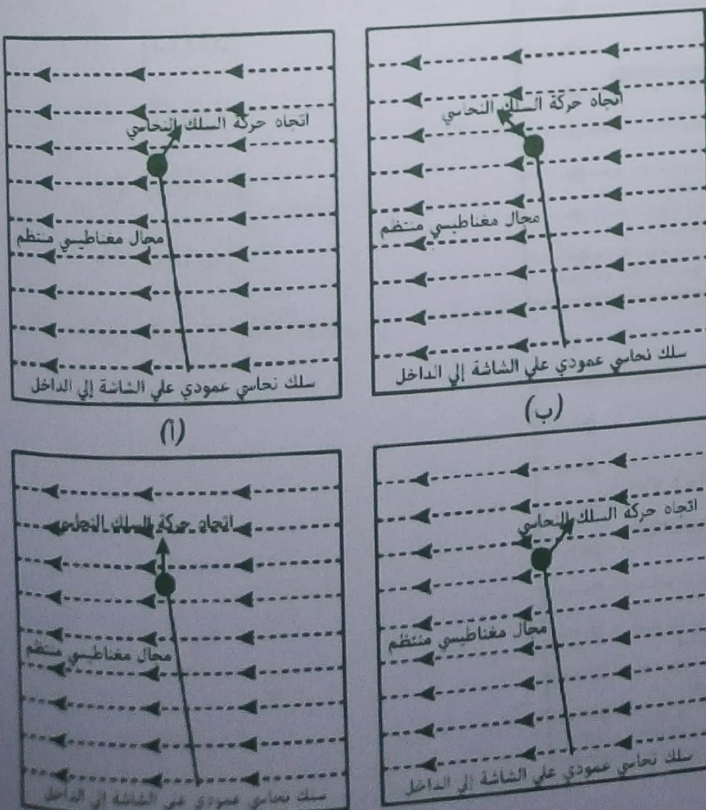 اتجاه حركة السلك النحاسي
مجال مغناطيسي منتظم
سلك نحاسي عمودي علي الشاشة إلي الداخل
(أ)
اتجاه حركة السلك النحاسي
مجال مغناطيسي منتظم
سلك نحاسي عمودي علي الشاشة إلي الداخل
(ب)
اتجاه حركة السلك النحاسي
مجال مغناطيسي منتظم
سلك نحاسي عمودي علي الشاشة إلي الداخل
اتجاه حركة السلك النحاسي
مجال مغناطيسي منتظم
سلك نحاسي عمودي علي الشاشة إلي الداخل